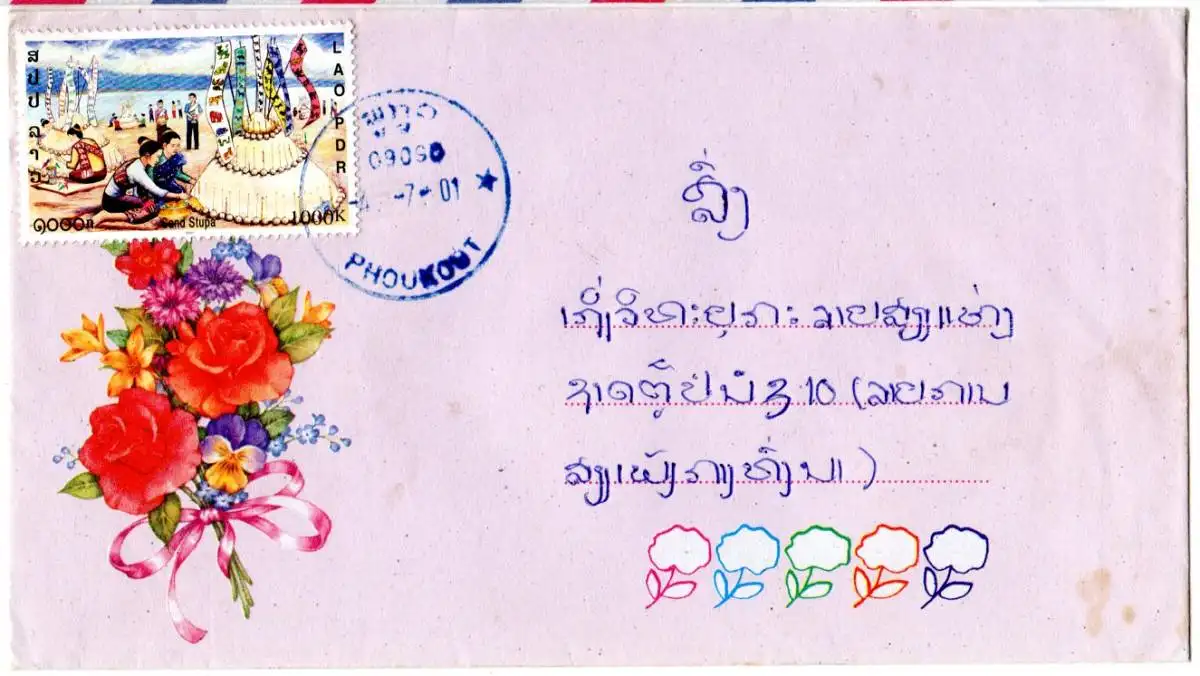 ສປປ ລາວ
LAO PDR
໑໐໐໐ກ
Sand Stupa
1000K
ພູກູດ
09090
-7-01
PHOUKOUT
ສົ່ງ
ວິທະຍຸກະ ຈາຍສຽງແຫ່ງ
ຊາດຕູ້ 10 (ລາຍການ
ສຽງເພັງກາງທົ່ງນາ)